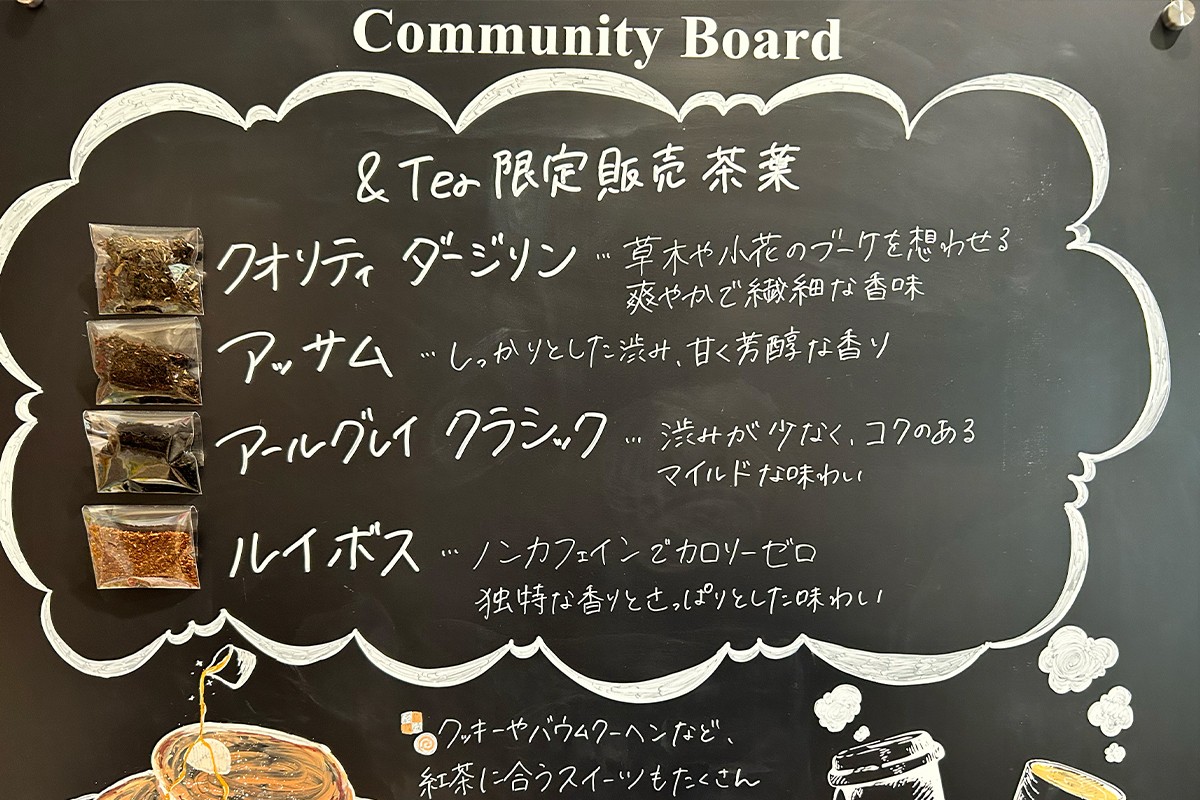 Community Board
& Tea 限定販売茶葉
クオリティ ダージリン … 草木や小花のブーケを想わせる
爽やかで繊細な香味
アッサム … しっかりとした渋み、甘く芳醇な香り
アールグレイ クラシック … 渋みが少なく、コクのある
マイルドな味わい
ルイボス … ノンカフェインでカロリーゼロ
独特な香りとさっぱりとした味わい
クッキーやバウムクーヘンなど、
紅茶に合うスイーツもたくさん